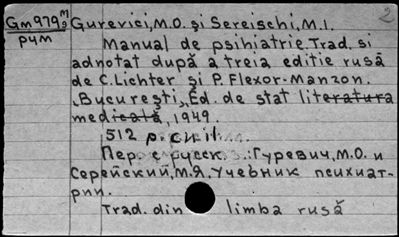 2
Gm979m/9 Gurevici, M.O. şi Sereischi, M.I.
рчм
Manual de psihiatrie. Trad. si
adnotat după a treia editie rusă
de C. Lichter şi P. Flexor-Manzon.
"Bucureşti", Ed. de stat literatura
medicală, 1949.
512 p. cu il.
Пер. с русск.: Гуревич, М.О. и
Серейский, М.Я. Учебник психиат-
рии.
Trad. din limba rusă